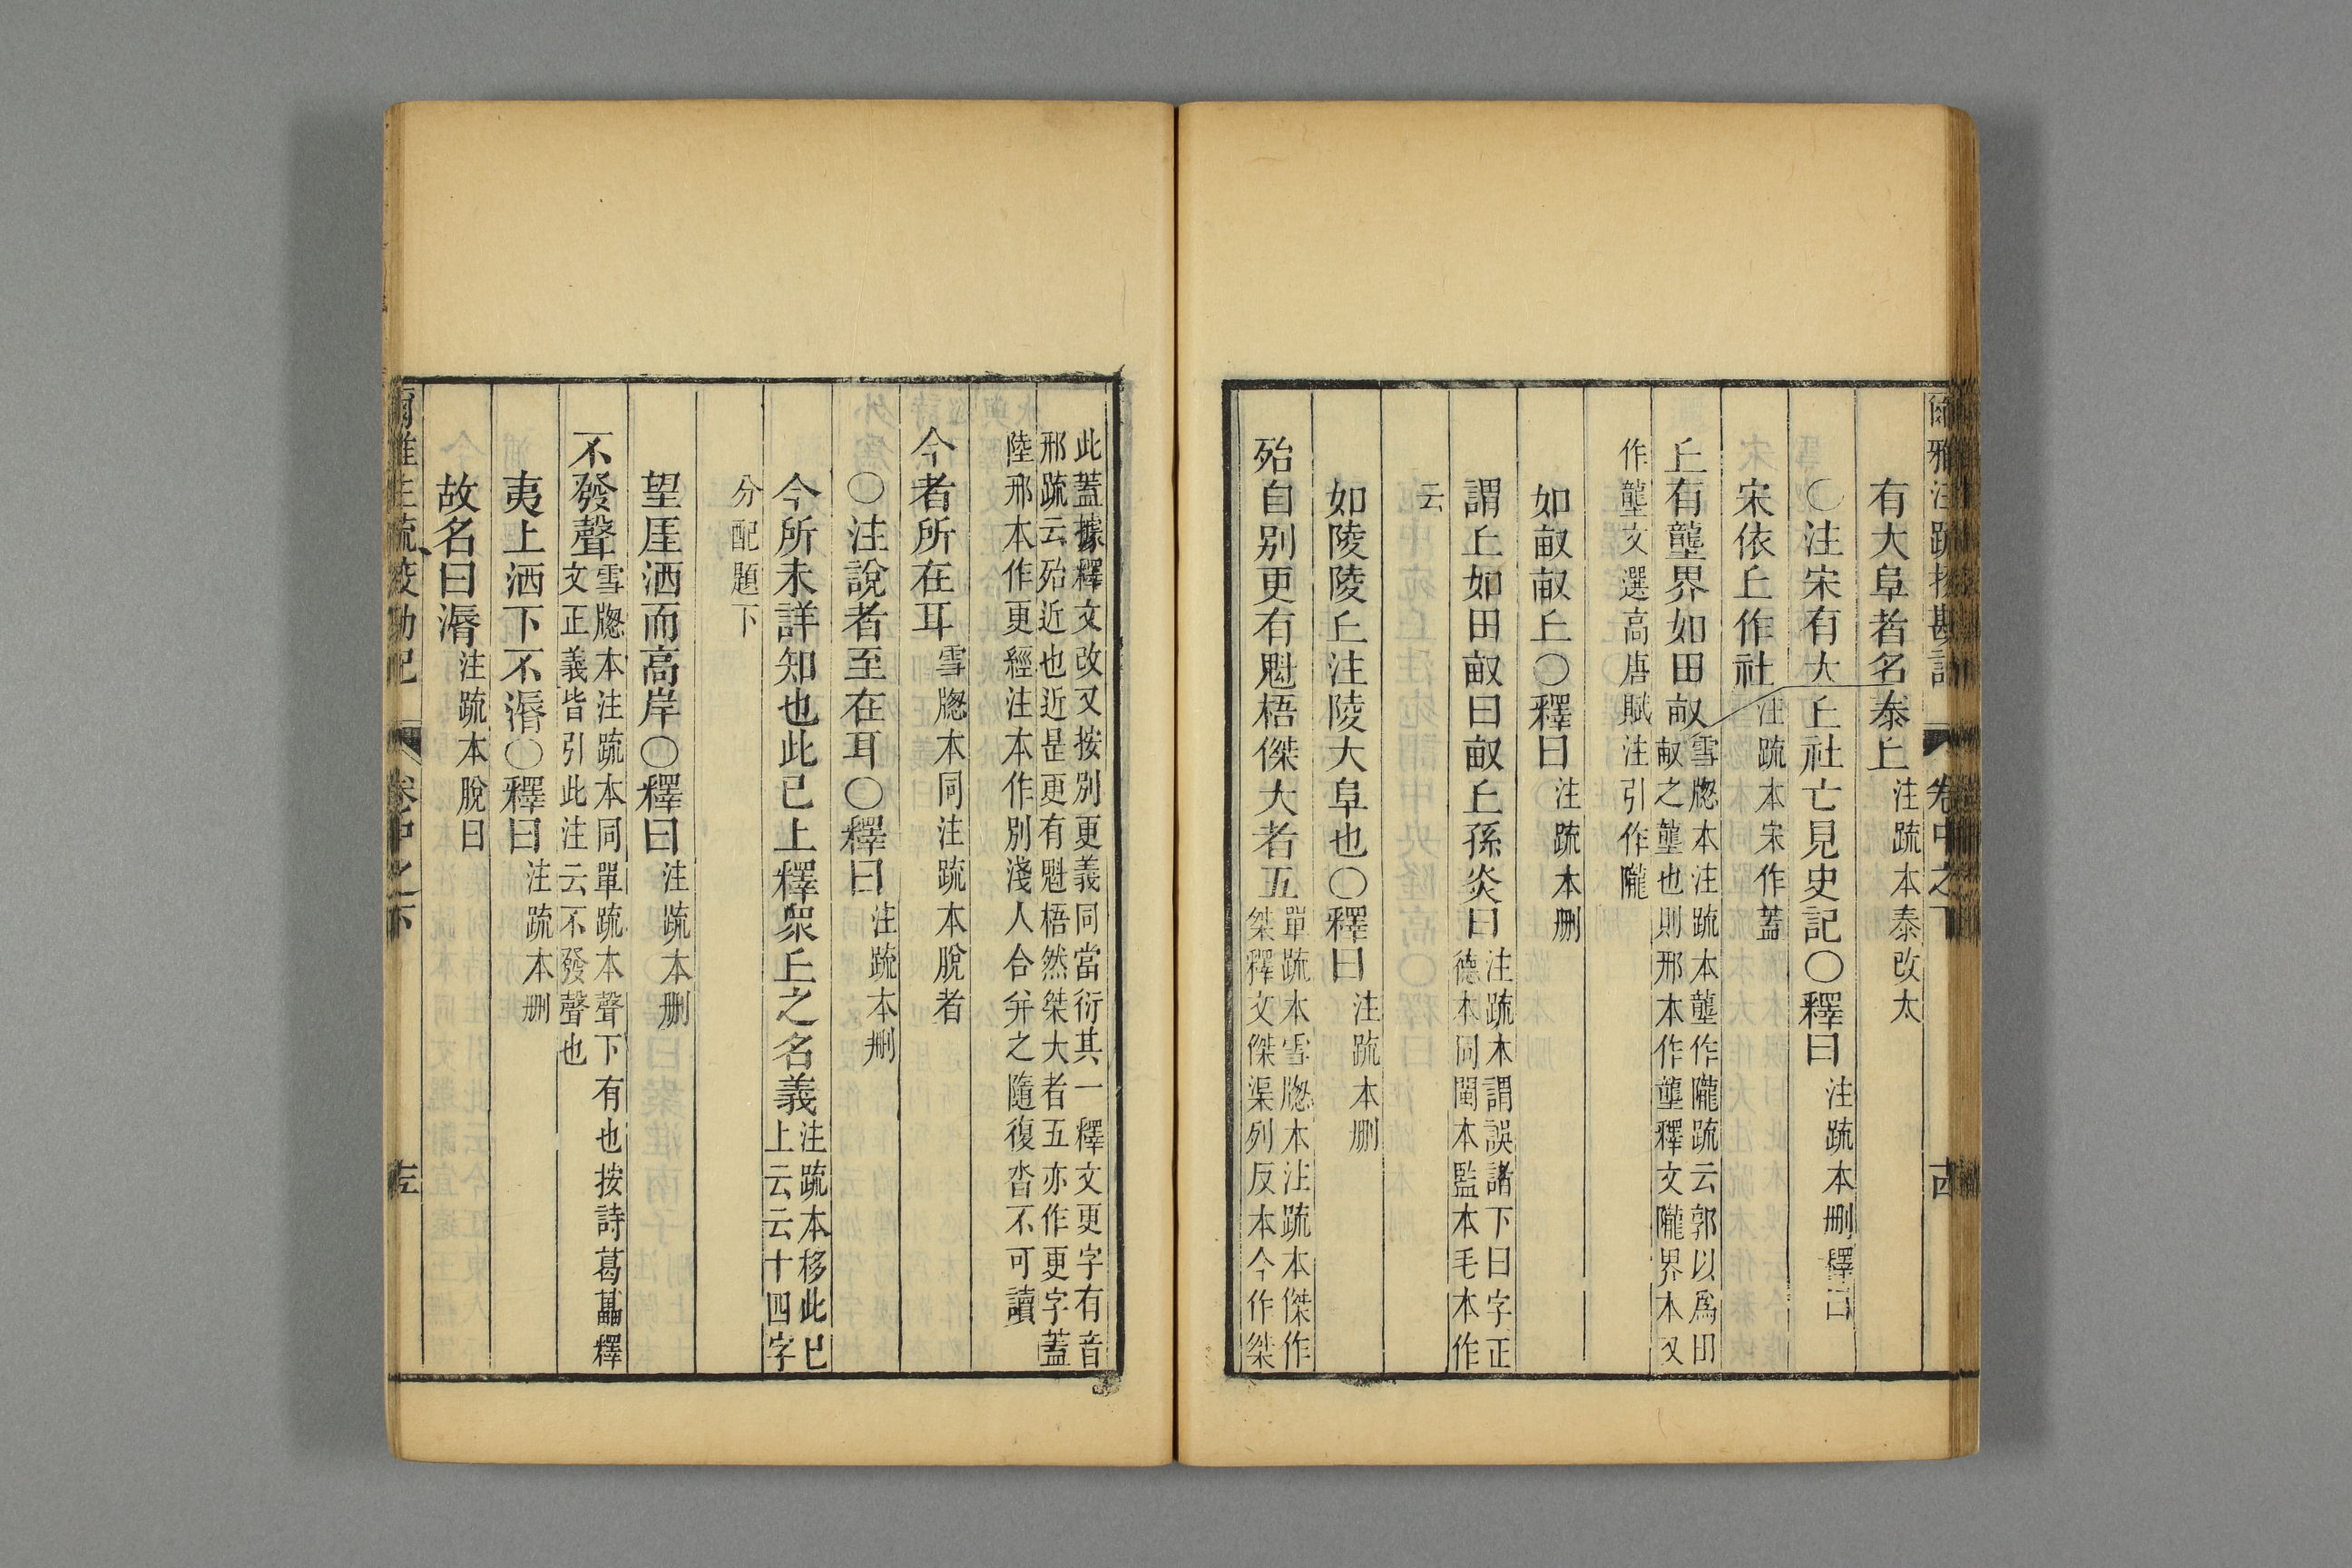 爾雅注疏校勘記 卷中之下
有大阜者名泰丘 注疏本泰改太
○注宋有大丘社亡見史記○釋曰 注疏本刪釋曰
宋依丘作社 注疏本宋作蓋
丘有壟界如田畝 雪牕本注疏本壟作隴疏云郭以爲田
畝之壟也則邢本作壟釋文隴界本又
作壟文選高唐賦注引作隴
如畝畝丘○釋曰 注疏本刪
謂丘如田畝曰畝丘孫炎曰 注疏本謂誤諸下曰字正
德本同閩本監本毛本作
云
如陵陵丘注陵大阜也○釋曰 注疏本刪
殆自别更有魁梧傑大者五 單疏本雪牕本注疏本傑作
桀釋文傑渠列反本今作桀
此蓋據釋文改又按別更義同當衍其一釋文更字有音
邢疏云殆近也近是更有魁梧然桀大者五亦作更字蓋
陸邢本作更經注本作別淺人合并之隨復沓不可讀
今者所在耳 雪牕本同注疏本脫者
○注說者至在耳○釋曰 注疏本刪
今所未詳知也此已上釋衆丘之名義 注疏本移此已
上云云十四字
分配題下
望厓洒而高岸○釋曰 注疏本刪
不發聲 雪牕本注疏本同單疏本聲下有也按詩葛藟釋
文正義皆引此注云不發聲也
夷上洒下不漘○釋曰 注疏本刪
故名曰漘 注疏本脫曰
爾雅注疏校勘記 卷中之下